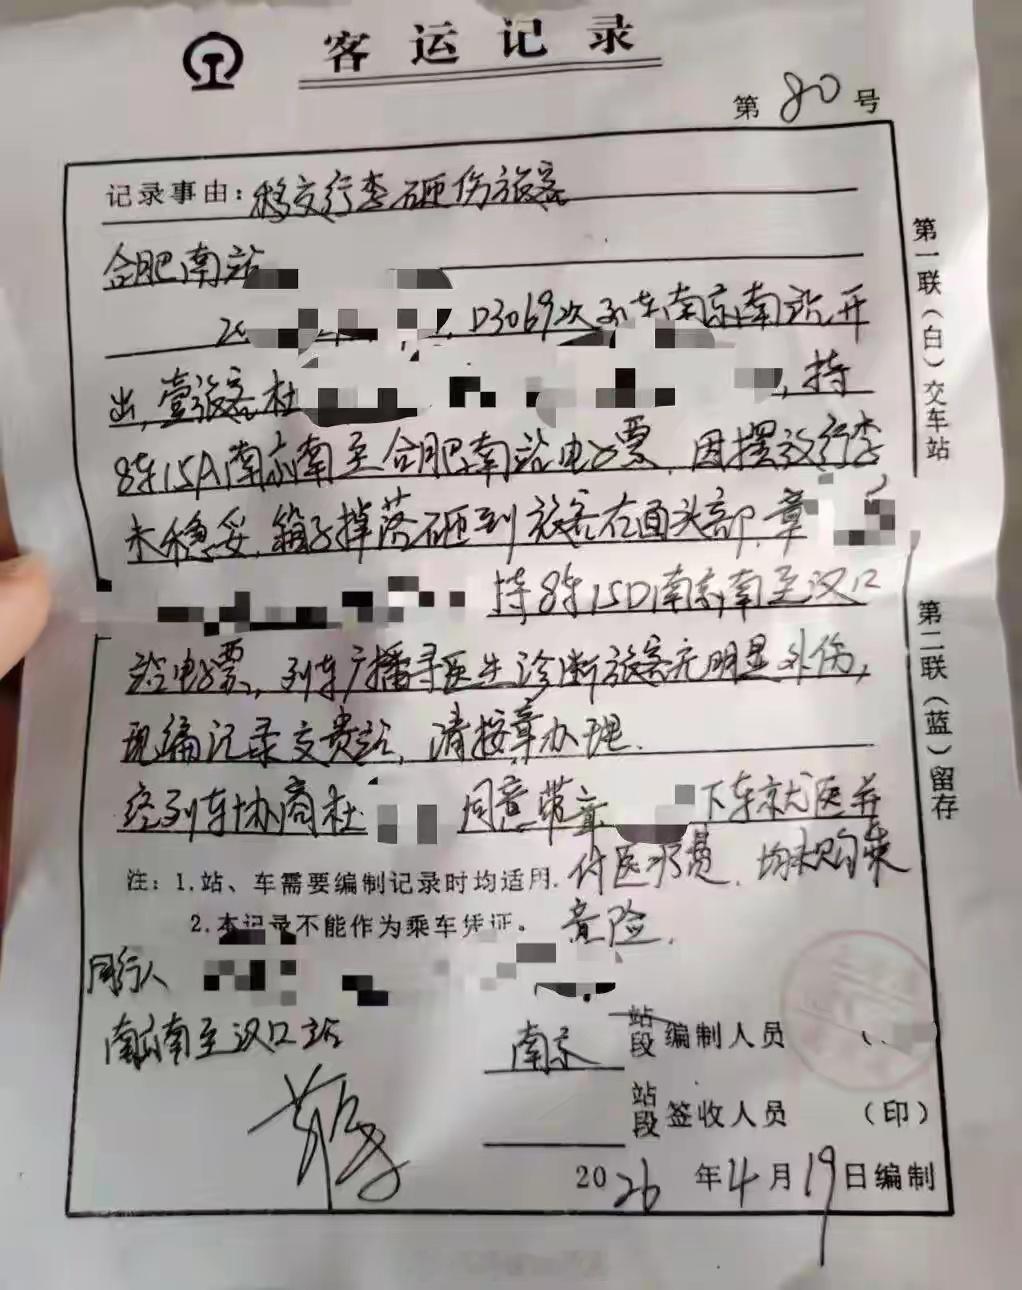 客运记录
第80号
记录事由:移交行李砸伤旅客
合肥南站
D3069次列车南京南站开
出,壹旅客杜,持
8车15A南京南至合肥南站电子票,因摆放行李
未稳妥,箱子掉落砸到旅客右面头部,章
持8车15D南京南至汉口
站电子票,列车广播寻医生诊断旅客无明显外伤,
现编记录交贵站,请按章办理.
经列车协商杜同意带章下车就医并
付医疗费.均未购乘
意险.
注:1.站、车需要编制记录时均适用.
2.本记录不能作为乘车凭证。
同行人
南京南至汉口站
南京 站段 编制人员
站段 签收人员 (印)
2026年4月19日编制
第一联(白)交车站
第二联(蓝)留存